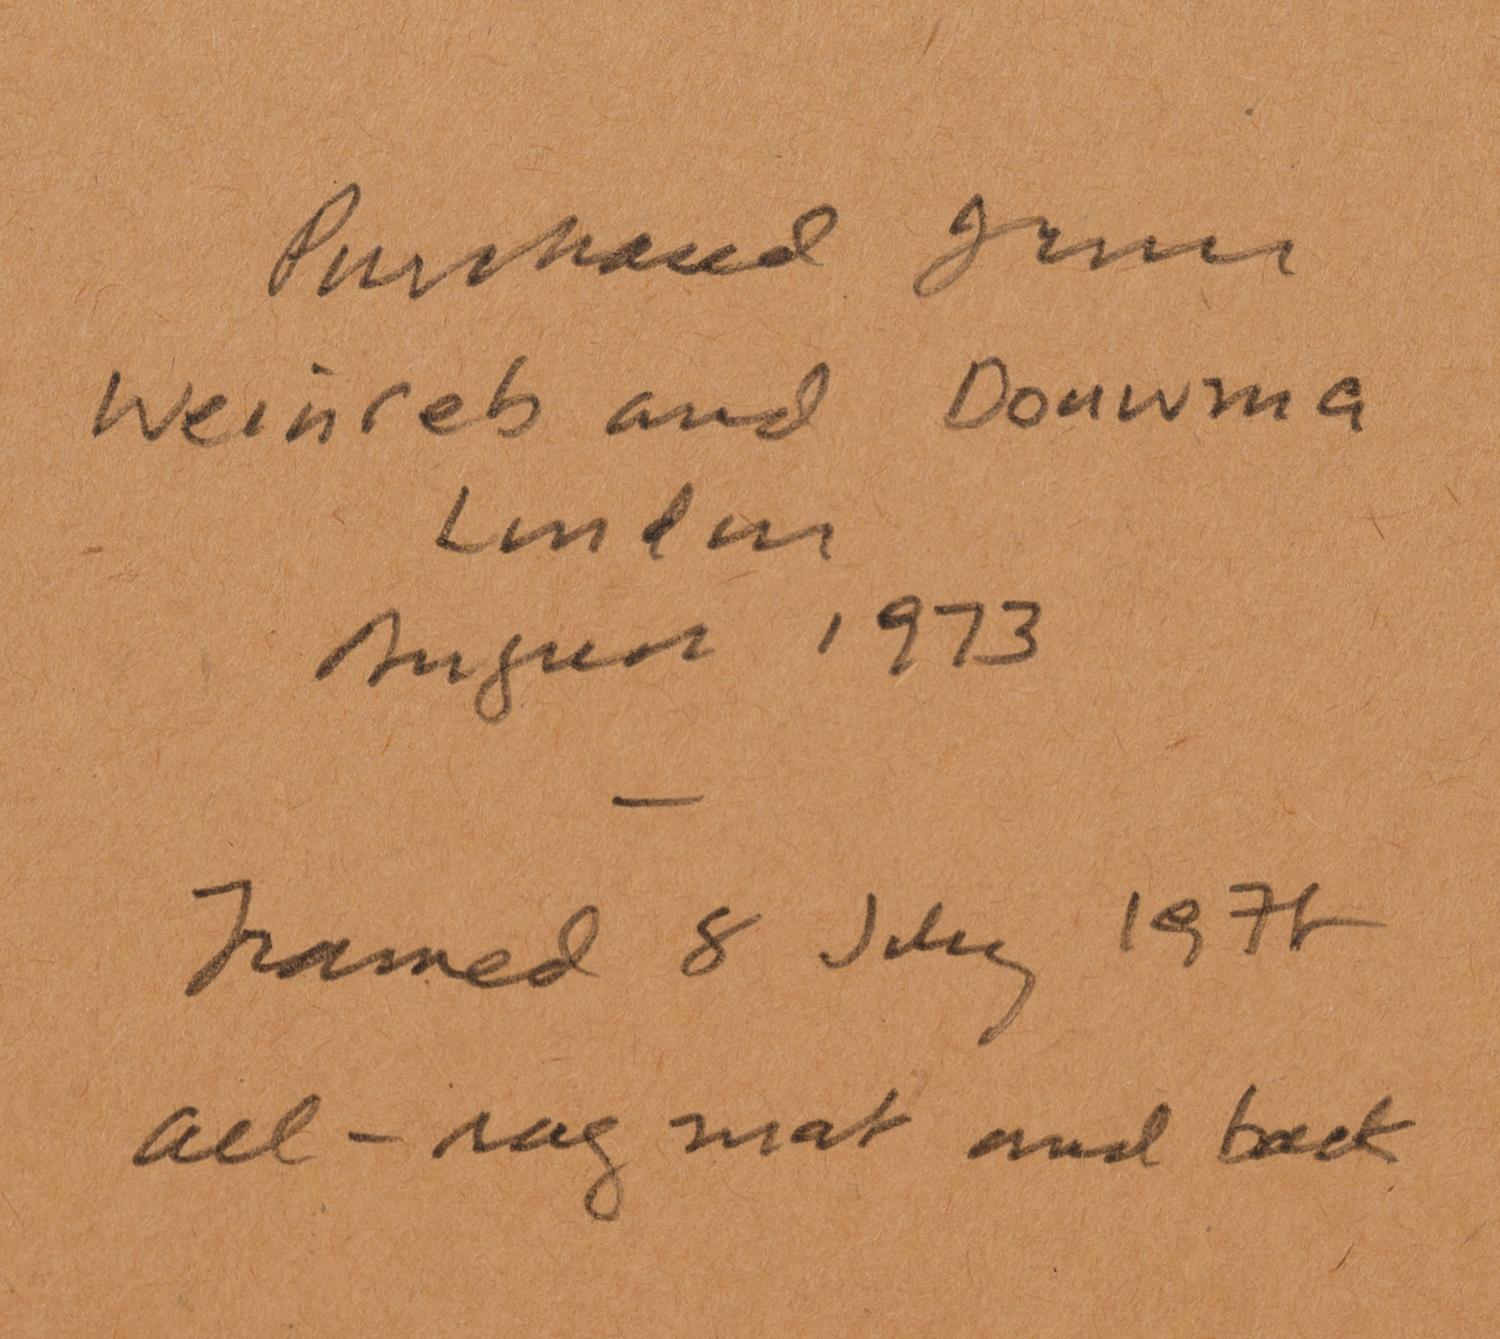 Purchased from
Weinreb and Douwma
London
August 1973
—
Framed 8 July
all-rag mat and back